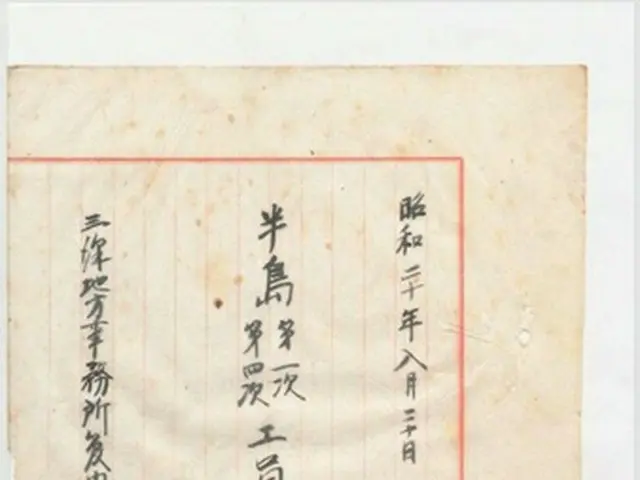 昭和二十年八月二十日
半島第一次第四次工員
地方事務所